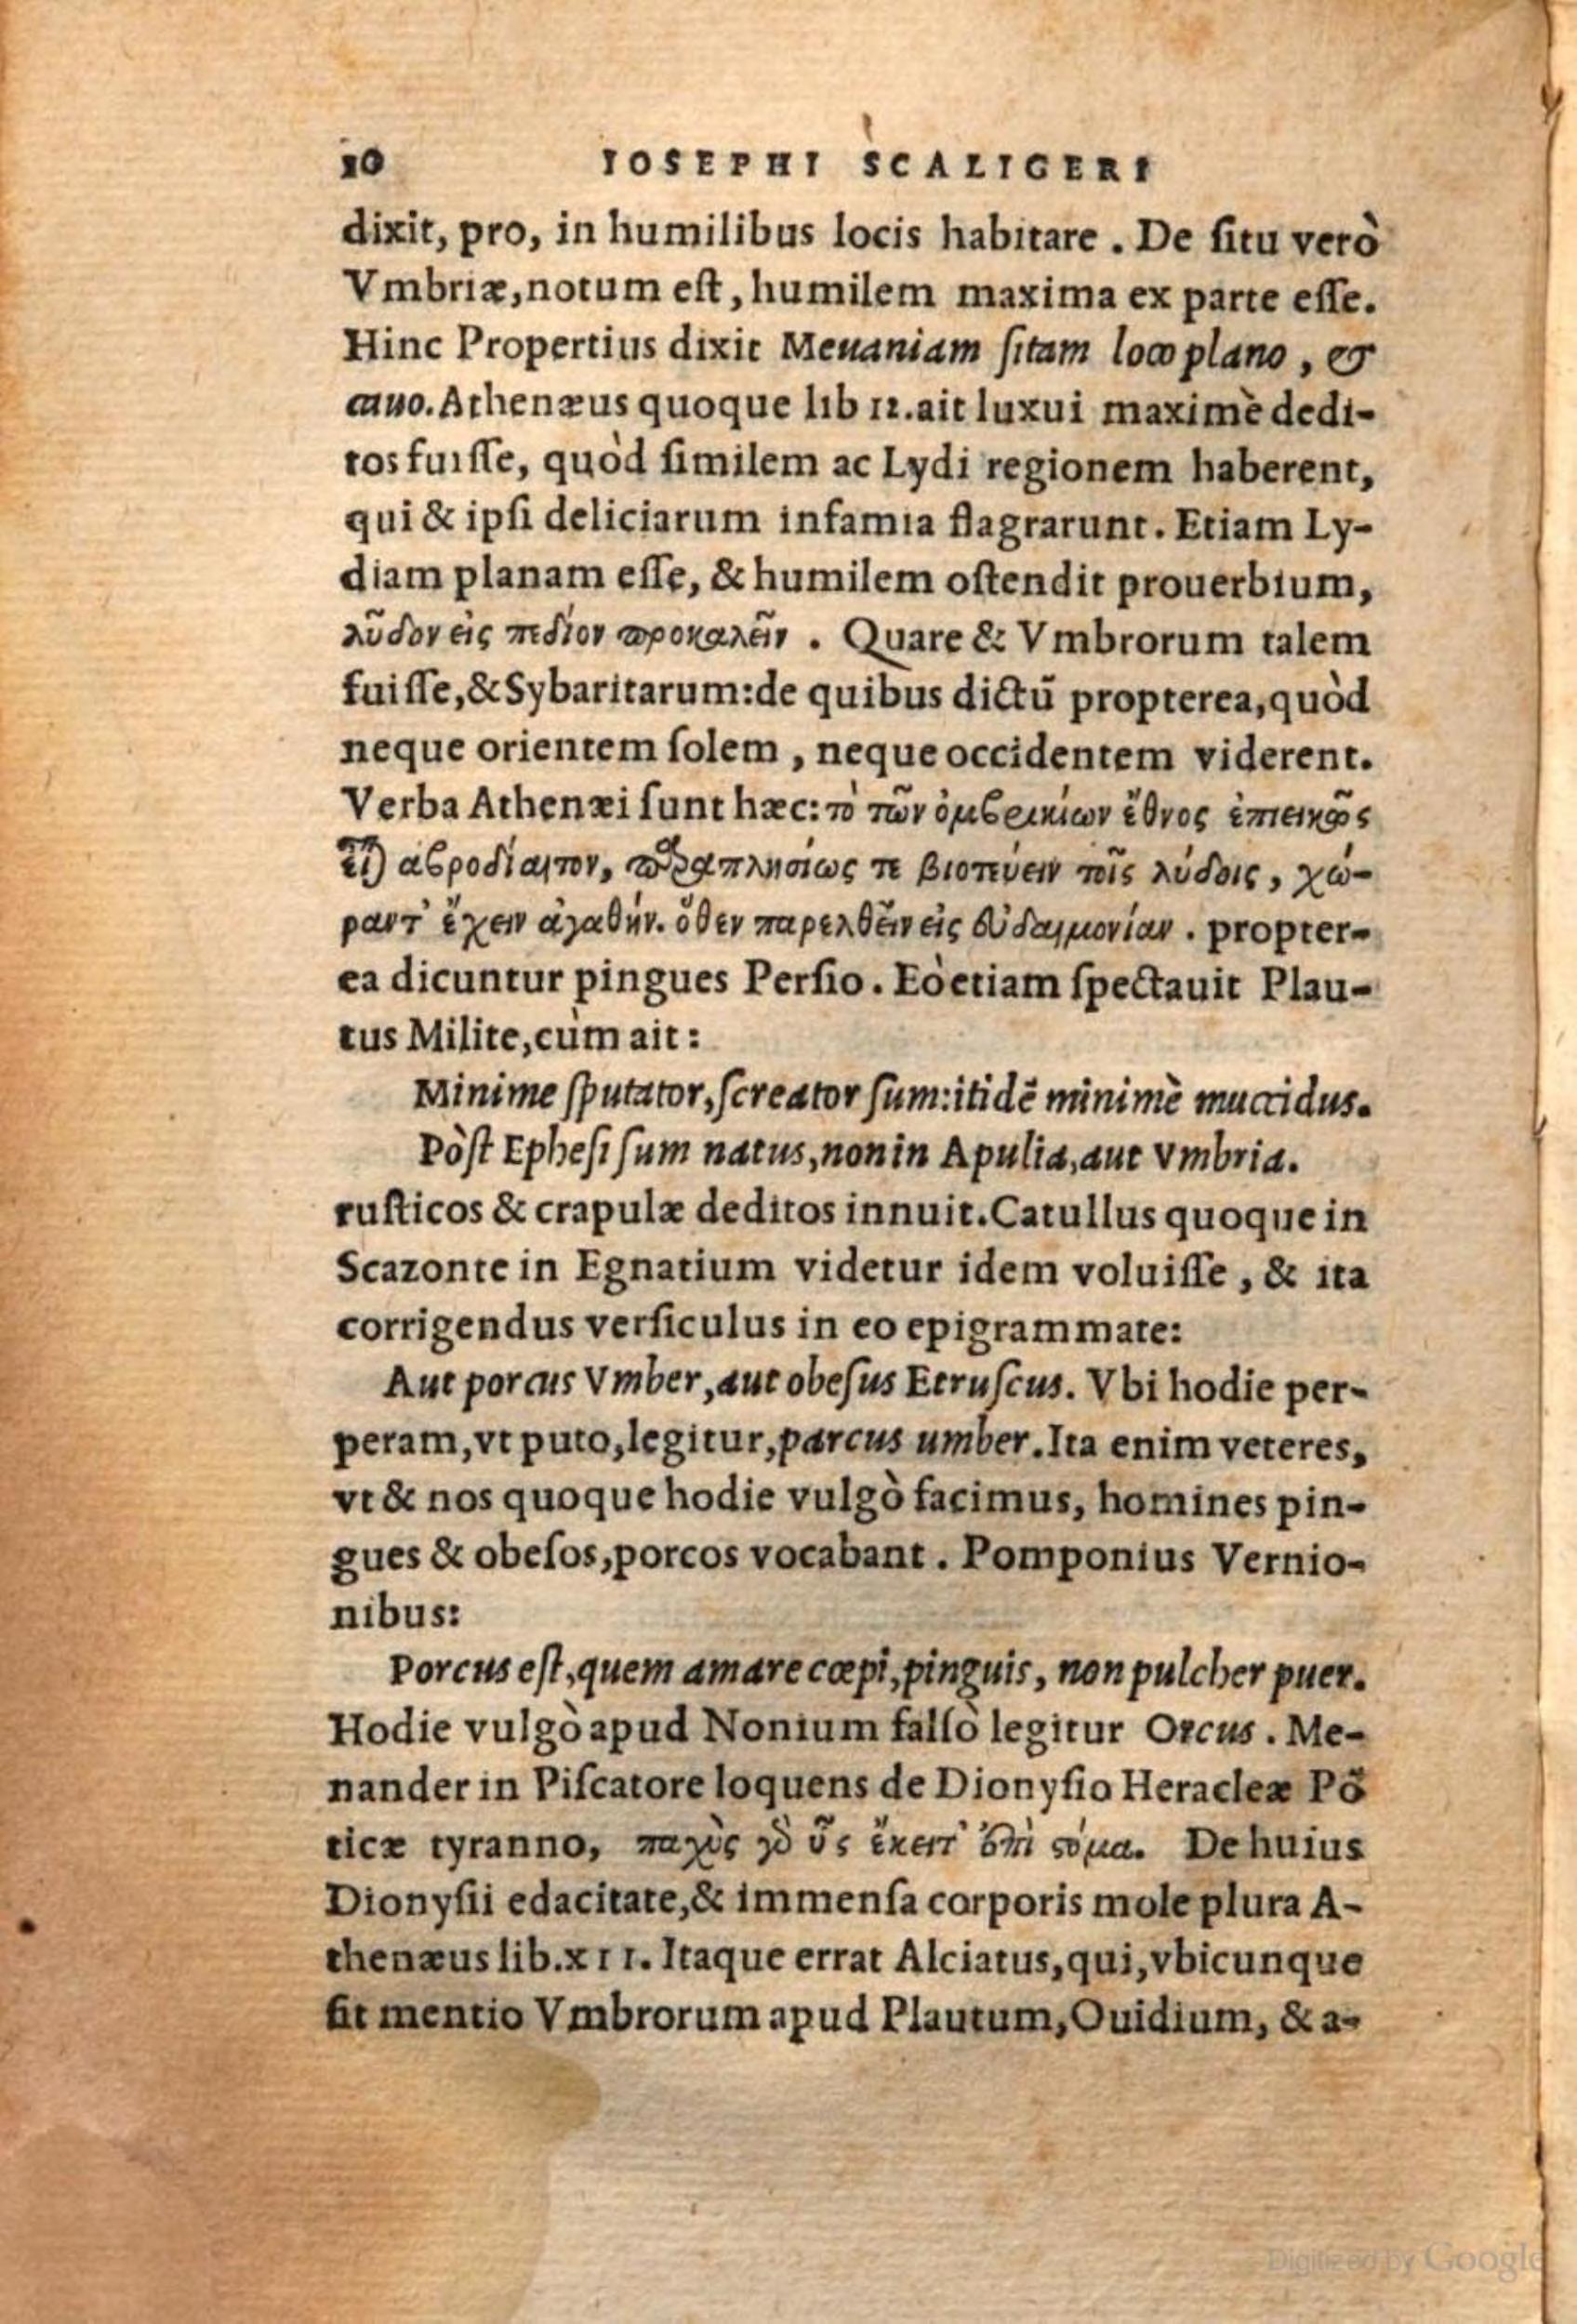 10 IOSEPHI SCALIGERI
dixit, pro, in humilibus locis habitare . De ſitu verò
Vmbriæ, notum eſt, humilem maxima ex parte eſſe.
Hinc Propertius dixit Meuaniam ſitam loco plano, &
cauo. Athenæus quoque lib 12. ait luxui maximè dedi-
tos fuiſſe, quòd ſimilem ac Lydi regionem haberent,
qui & ipſi deliciarum infamia flagrarunt. Etiam Ly-
diam planam eſſe, & humilem oſtendit prouerbium,
λῦδον εἰς πεδίον προκαλεῖν . Quare & Vmbrorum talem
fuiſſe, & Sybaritarum: de quibus dictū propterea, quòd
neque orientem ſolem, neque occidentem viderent.
Verba Athenæi ſunt hæc: τὸ τῶν ὀμβρικίων ἔθνος ἐπιεικῶς
εἶ) αβροδίαιτον, παραπλησίως τε βιοτεύειν τοῖς λύδοις, χώ-
ραντ' ἔχειν ἀγαθήν. ὅθεν παρελθεῖν εἰς εὐδαιμονίαν . propter-
ea dicuntur pingues Perſio. Eò etiam ſpectauit Plau-
tus Milite, cùm ait:
Minime ſputator, ſcreator ſum: itidē minimè muccidus.
Pòſt Epheſi ſum natus, non in Apulia, aut Vmbria.
ruſticos & crapulæ deditos innuit. Catullus quoque in
Scazonte in Egnatium videtur idem voluiſſe, & ita
corrigendus verſiculus in eo epigrammate:
Aut porcus Vmber, aut obeſus Etruſcus. Vbi hodie per-
peram, vt puto, legitur, parcus umber. Ita enim veteres,
vt & nos quoque hodie vulgò facimus, homines pin-
gues & obeſos, porcos vocabant . Pomponius Vernio-
nibus:
Porcus eſt, quem amare cœpi, pinguis, non pulcher puer.
Hodie vulgò apud Nonium falſò legitur Orcus . Me-
nander in Piſcatore loquens de Dionyſio Heracleæ Pō
ticæ tyranno, παχὺς γὸ ὗς ἔκειτ' ἐπὶ ϛόμα. De huius
Dionyſii edacitate, & immenſa corporis mole plura A-
thenæus lib. XII. Itaque errat Alciatus, qui, vbicunque
fit mentio Vmbrorum apud Plautum, Ouidium, & a-
Digitized by Google